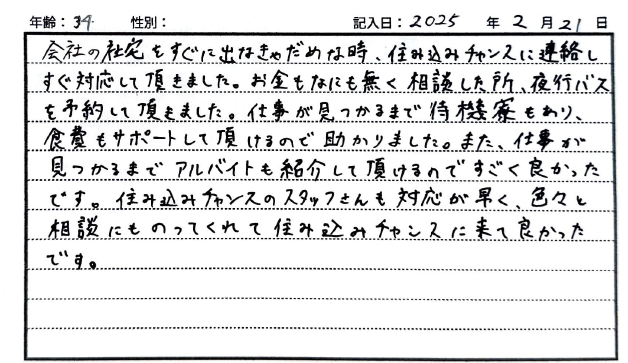 年齢：34 性別： 記入日：2025 年 2 月 21 日
会社の社宅をすぐに出なきゃだめな時、住み込みチャンスに連絡し
すぐ対応して頂きました。お金もなにも無く相談した所、夜行バス
を予約して頂きました。仕事が見つかるまで待機寮もあり、
食費もサポートして頂けるので助かりました。また、仕事が
見つかるまでアルバイトも紹介して頂けるのですごく良かった
です。住み込みチャンスのスタッフさんも対応が早く、色々と
相談にものってくれて住み込みチャンスに来て良かった
です。